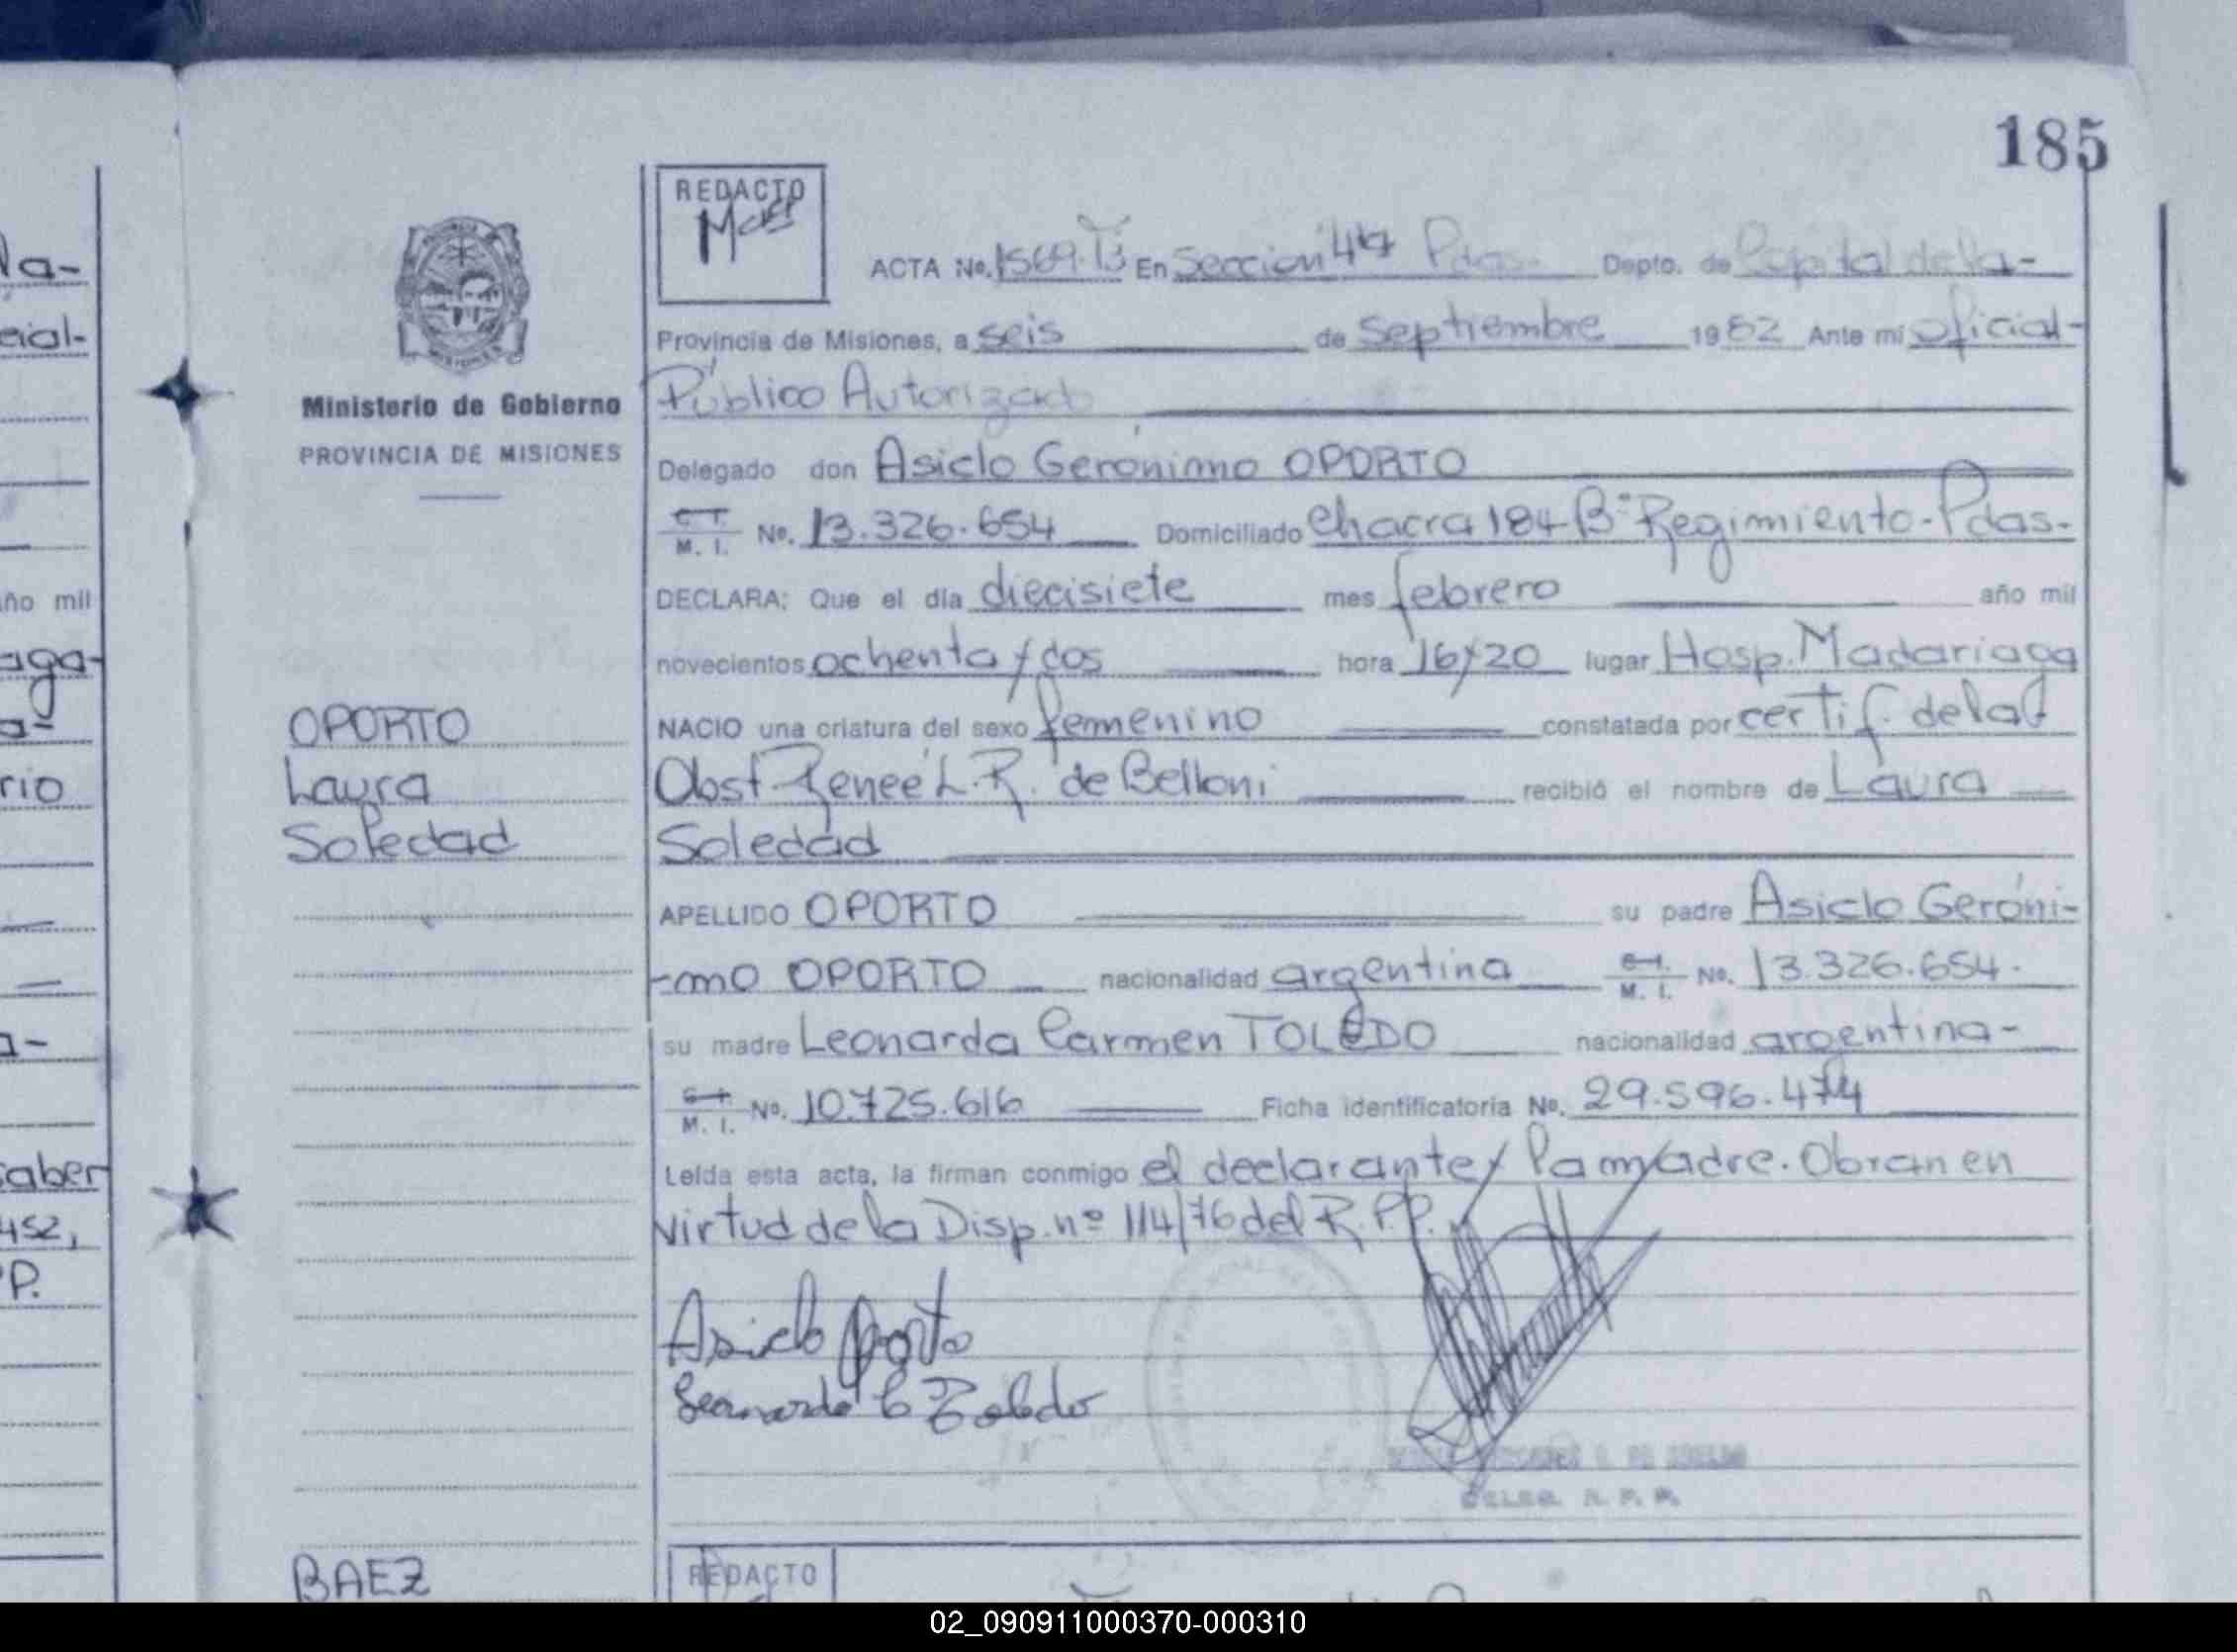 185
REDACTO
ACTA No. 1569. En Seccion 4ta Pdas- Depto. de Capital de la-
Provincia de Misiones, a seis de Septiembre 1982 Ante mi Oficial-
Público Autorizado
Ministerio de Gobierno
PROVINCIA DE MISIONES
Delegado don Asiclo Gerónimo OPORTO
C. I. M. I. No. 13.326.654 Domiciliado Chacra 184-Bº Regimiento-Pdas-
DECLARA: Que el día diecisiete mes febrero año mil
novecientos ochenta y dos hora 16y20 lugar Hosp. Madariaga
NACIO una criatura del sexo femenino constatada por certif. de la
Obst. Renee L.R. de Belloni recibió el nombre de Laura
Soledad
OPORTO
Laura
Soledad
APELLIDO OPORTO su padre Asiclo Geróni-
-mo OPORTO nacionalidad argentina C. I. M. I. No. 13.326.654.
su madre Leonarda Carmen TOLEDO nacionalidad argentina-
C. I. M. I. No. 10.725.616 Ficha identificatoria No. 29.596.474
Leída esta acta, la firman conmigo el declarante y la madre. Obran en
virtud de la Disp. nº 114/76 del R.P.P.
Asiclo Oporto
Leonarda C Toledo
DELEG. R. P. P.
BAEZ
REDACTO
la-
cial-
año mil
aga-
a-
rio
a-
saber
452,
P.
02_090911000370-000310